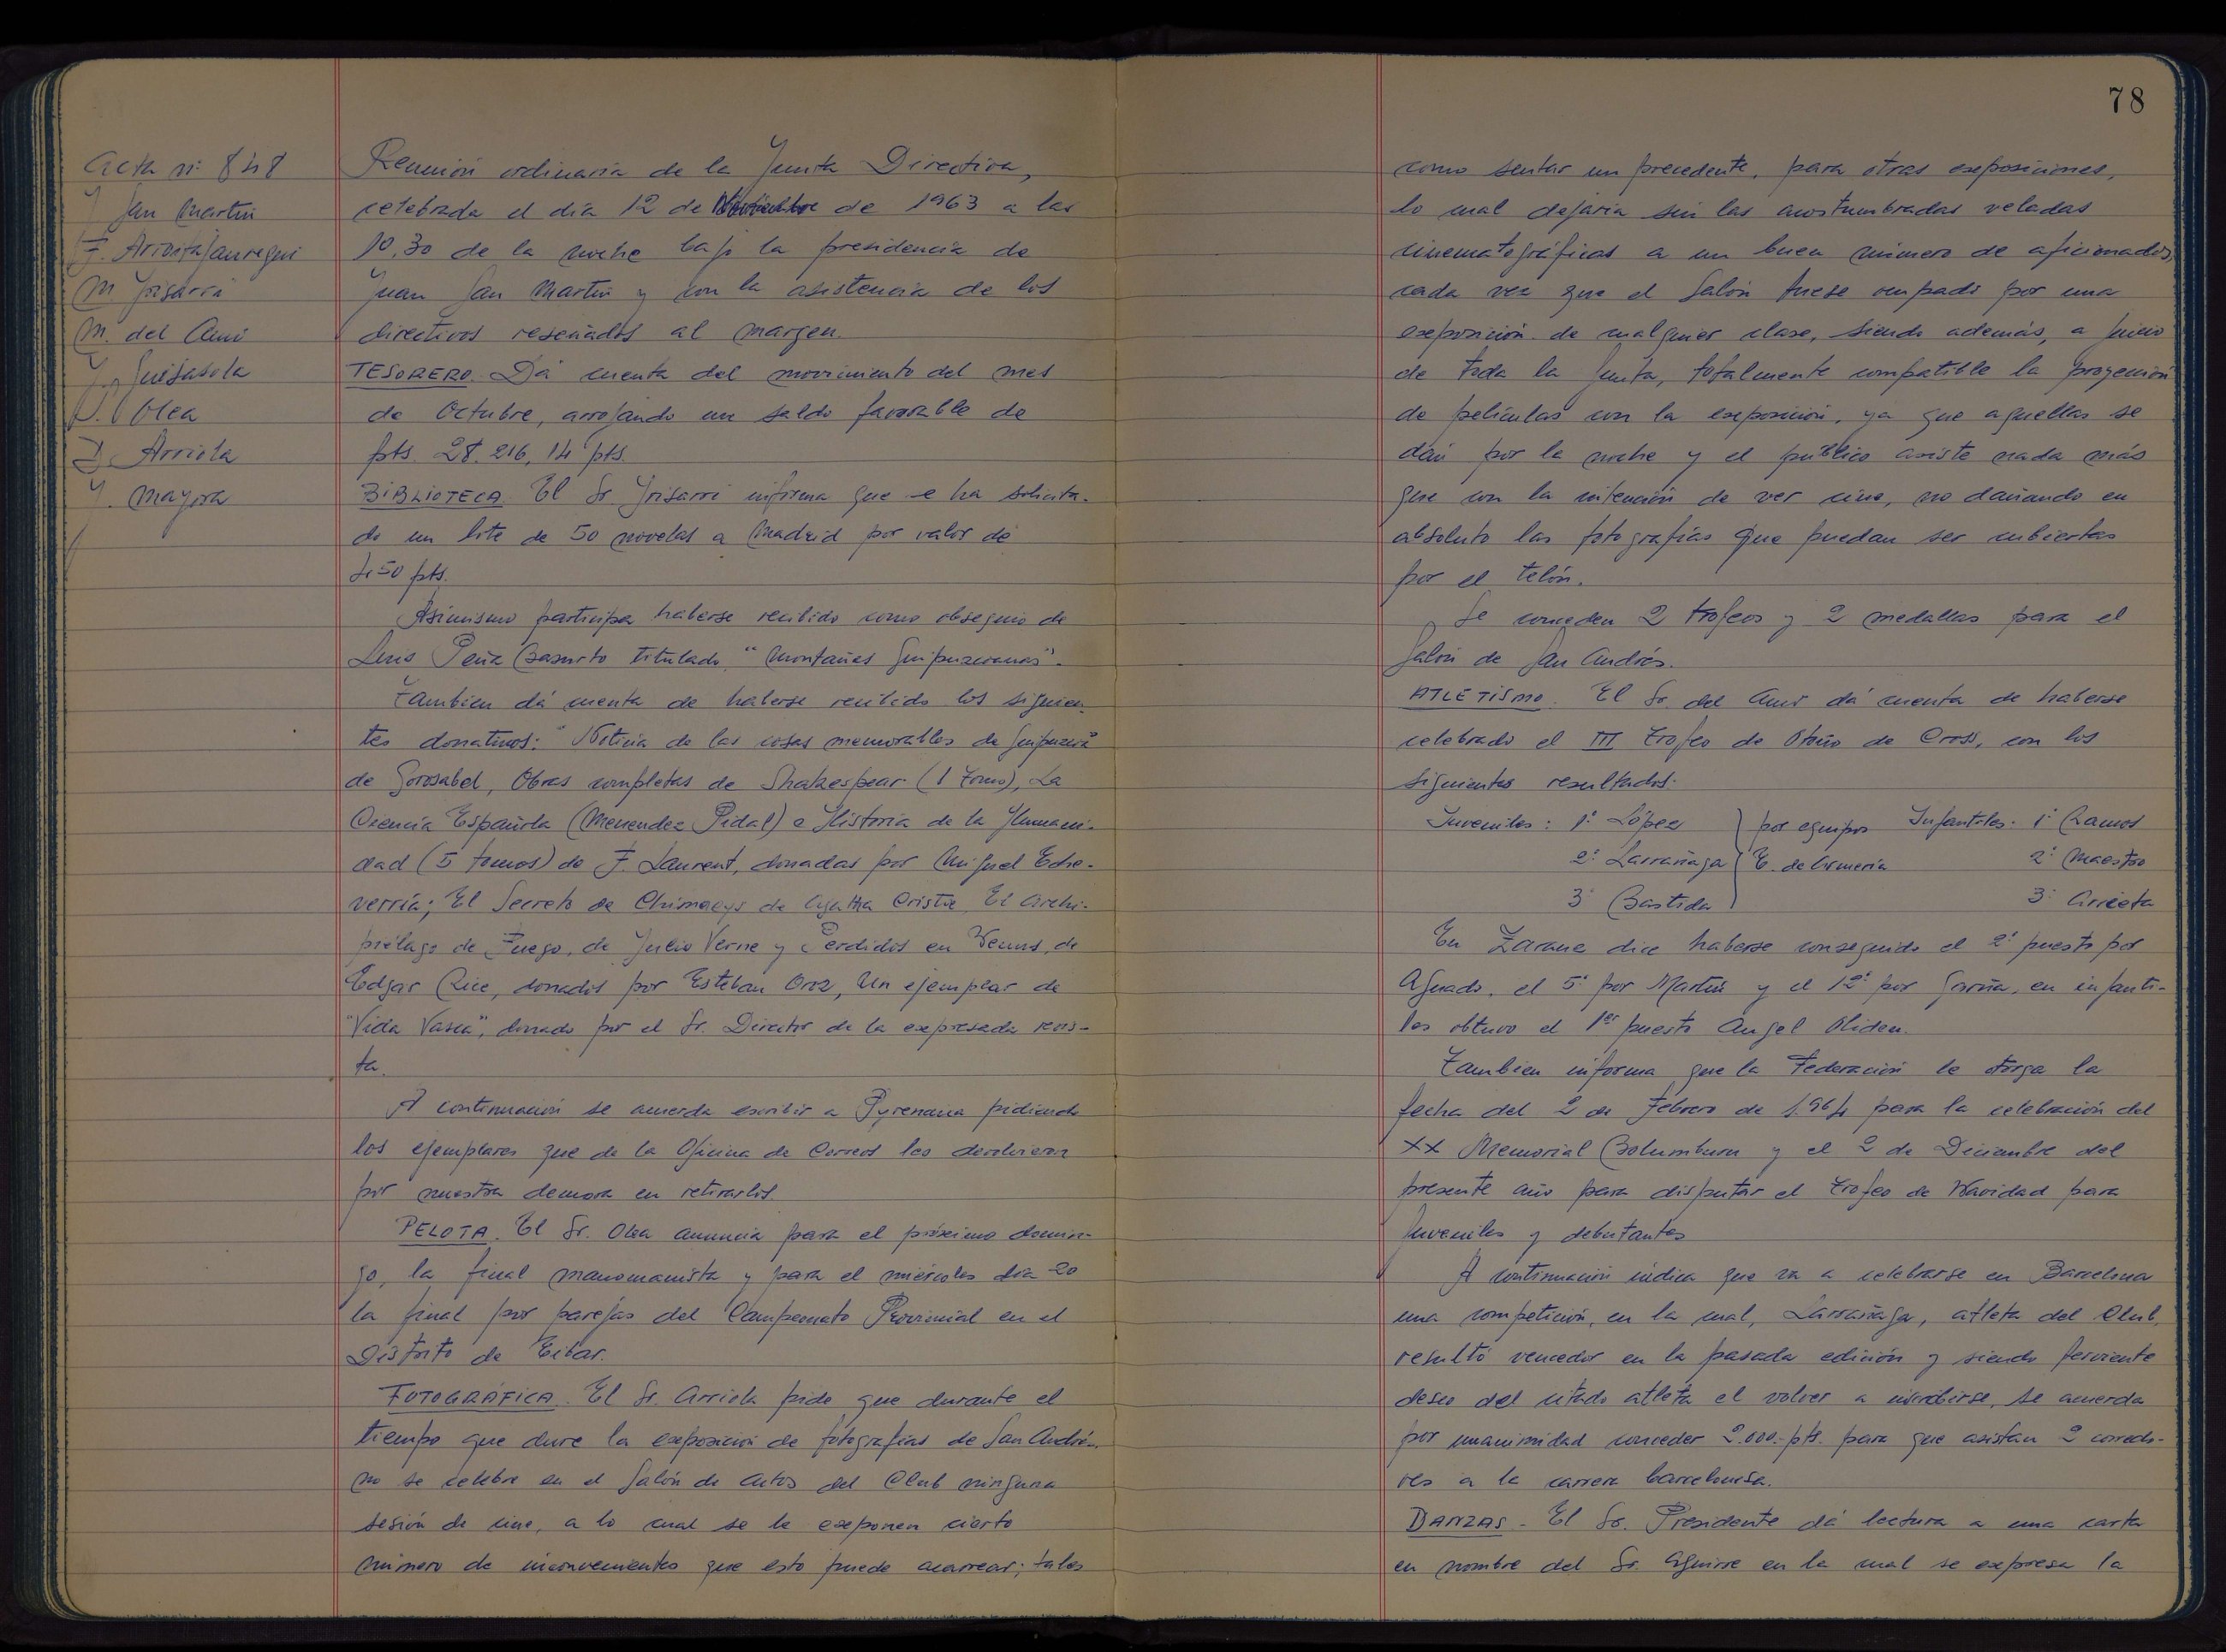 78
Acta nº 848
J. San Martin
F. Arriola Jauregui
M. Yrisarri
M. del Amo
J. Guisasola
Olea
D. Arriola
J. Mayora
Reunión ordinaria de la Junta Directiva,
celebrada el día 12 de Noviembre de 1963 a las
10,30 de la noche bajo la presidencia de
Juan San Martin y con la asistencia de los
directivos reseñados al margen.
TESORERO. Dá cuenta del movimiento del mes
de Octubre, arrojando un saldo favorable de
pts. 28.216,14 pts.
BIBLIOTECA. El Sr. Yrisarri informa que se ha solicita-
do un lote de 50 novelas a Madrid por valor de
450 pts.
Asimismo participa haberse recibido como obsequio de
Luis Peña Basurto titulado, "Montañas Guipuzcoanas".
Tambien dá cuenta de haberse recibido los siguien-
tes donativos: "Noticia de las cosas memorables de Guipuzcoa"
de Gorosabel, Obras completas de Shakespear (1 Tomo), La
Ciencia Española (Menendez Pidal) e Historia de la Humani-
dad (5 tomos) de F. Laurent, donadas por Miguel Eche-
verría; El Secreto de Chimneys de Agatha Cristie, El Archi-
piélago de Fuego, de Julio Verne y Perdidos en Venus, de
Edgar Rice, donados por Esteban Oroz, Un ejemplar de
"Vida Vasca", donado por el Sr. Director de la expresada revis-
ta.
A continuación se acuerda escribir a Pyrenaica pidiendo
los ejemplares que de la Oficina de Correos les devolvieron
por nuestra demora en retirarlos.
PELOTA. El Sr. Olea anuncia para el próximo domin-
go, la final manomanista y para el miércoles día 20
la final por parejas del Campeonato Provincial en el
Distrito de Eibar.
FOTOGRÁFICA. El Sr. Arriola pide que durante el
tiempo que dure la exposición de fotografías de San Andrés
no se celebre en el Salón de Actos del Club ninguna
sesión de cine, a lo cual se le exponen cierto
número de inconvenientes que esto puede acarrear; tales
como sentar un precedente, para otras exposiciones,
lo cual dejaría sin las acostumbradas veladas
cinematográficas a un buen número de aficionados,
cada vez que el Salón fuese ocupado por una
exposición de cualquier clase, siendo además, a juicio
de toda la Junta, totalmente compatible la proyección
de películas con la exposición, ya que aquellas se
dán por la noche y el público asiste nada más
que con la intención de ver cine, no dañando en
absoluto las fotografías que puedan ser cubiertas
por el telón.
Se conceden 2 trofeos y 2 medallas para el
Salón de San Andrés.
ATLETISMO. El Sr. del Amo dá cuenta de haberse
celebrado el III Trofeo de Otoño de Cross, con los
siguientes resultados:
Juveniles: 1º López } por equipos Infantiles: 1º Ramos
2º Larrañaga E. de Armería 2º Maestro
3º Bastida 3º Arrieta
En Zarauz dice haberse conseguido el 2º puesto por
Aguado, el 5º por Martin y el 12º por , en infanti-
les obtuvo el 1er puesto Angel Oliden.
Tambien informa que la Federación le otorga la
fecha del 2 de Febrero de 1.964 para la celebración del
XX Memorial Bolumburu y el 2 de Diciembre del
presente año para disputar el Trofeo de Navidad para
juveniles y debutantes
A continuación indica que va a celebrarse en Barcelona
una competición, en la cual, Larrañaga, atleta del Club,
resultó vencedor en la pasada edición y siendo ferviente
deseo del citado atleta el volver a inscribirse, se acuerda
por unanimidad conceder 2.000.- pts. para que asistan 2 corredo-
res a la carrera barcelonesa.
DANZAS - El Sr. Presidente dá lectura a una carta
en nombre del Sr. Aguirre en la cual se expresa la